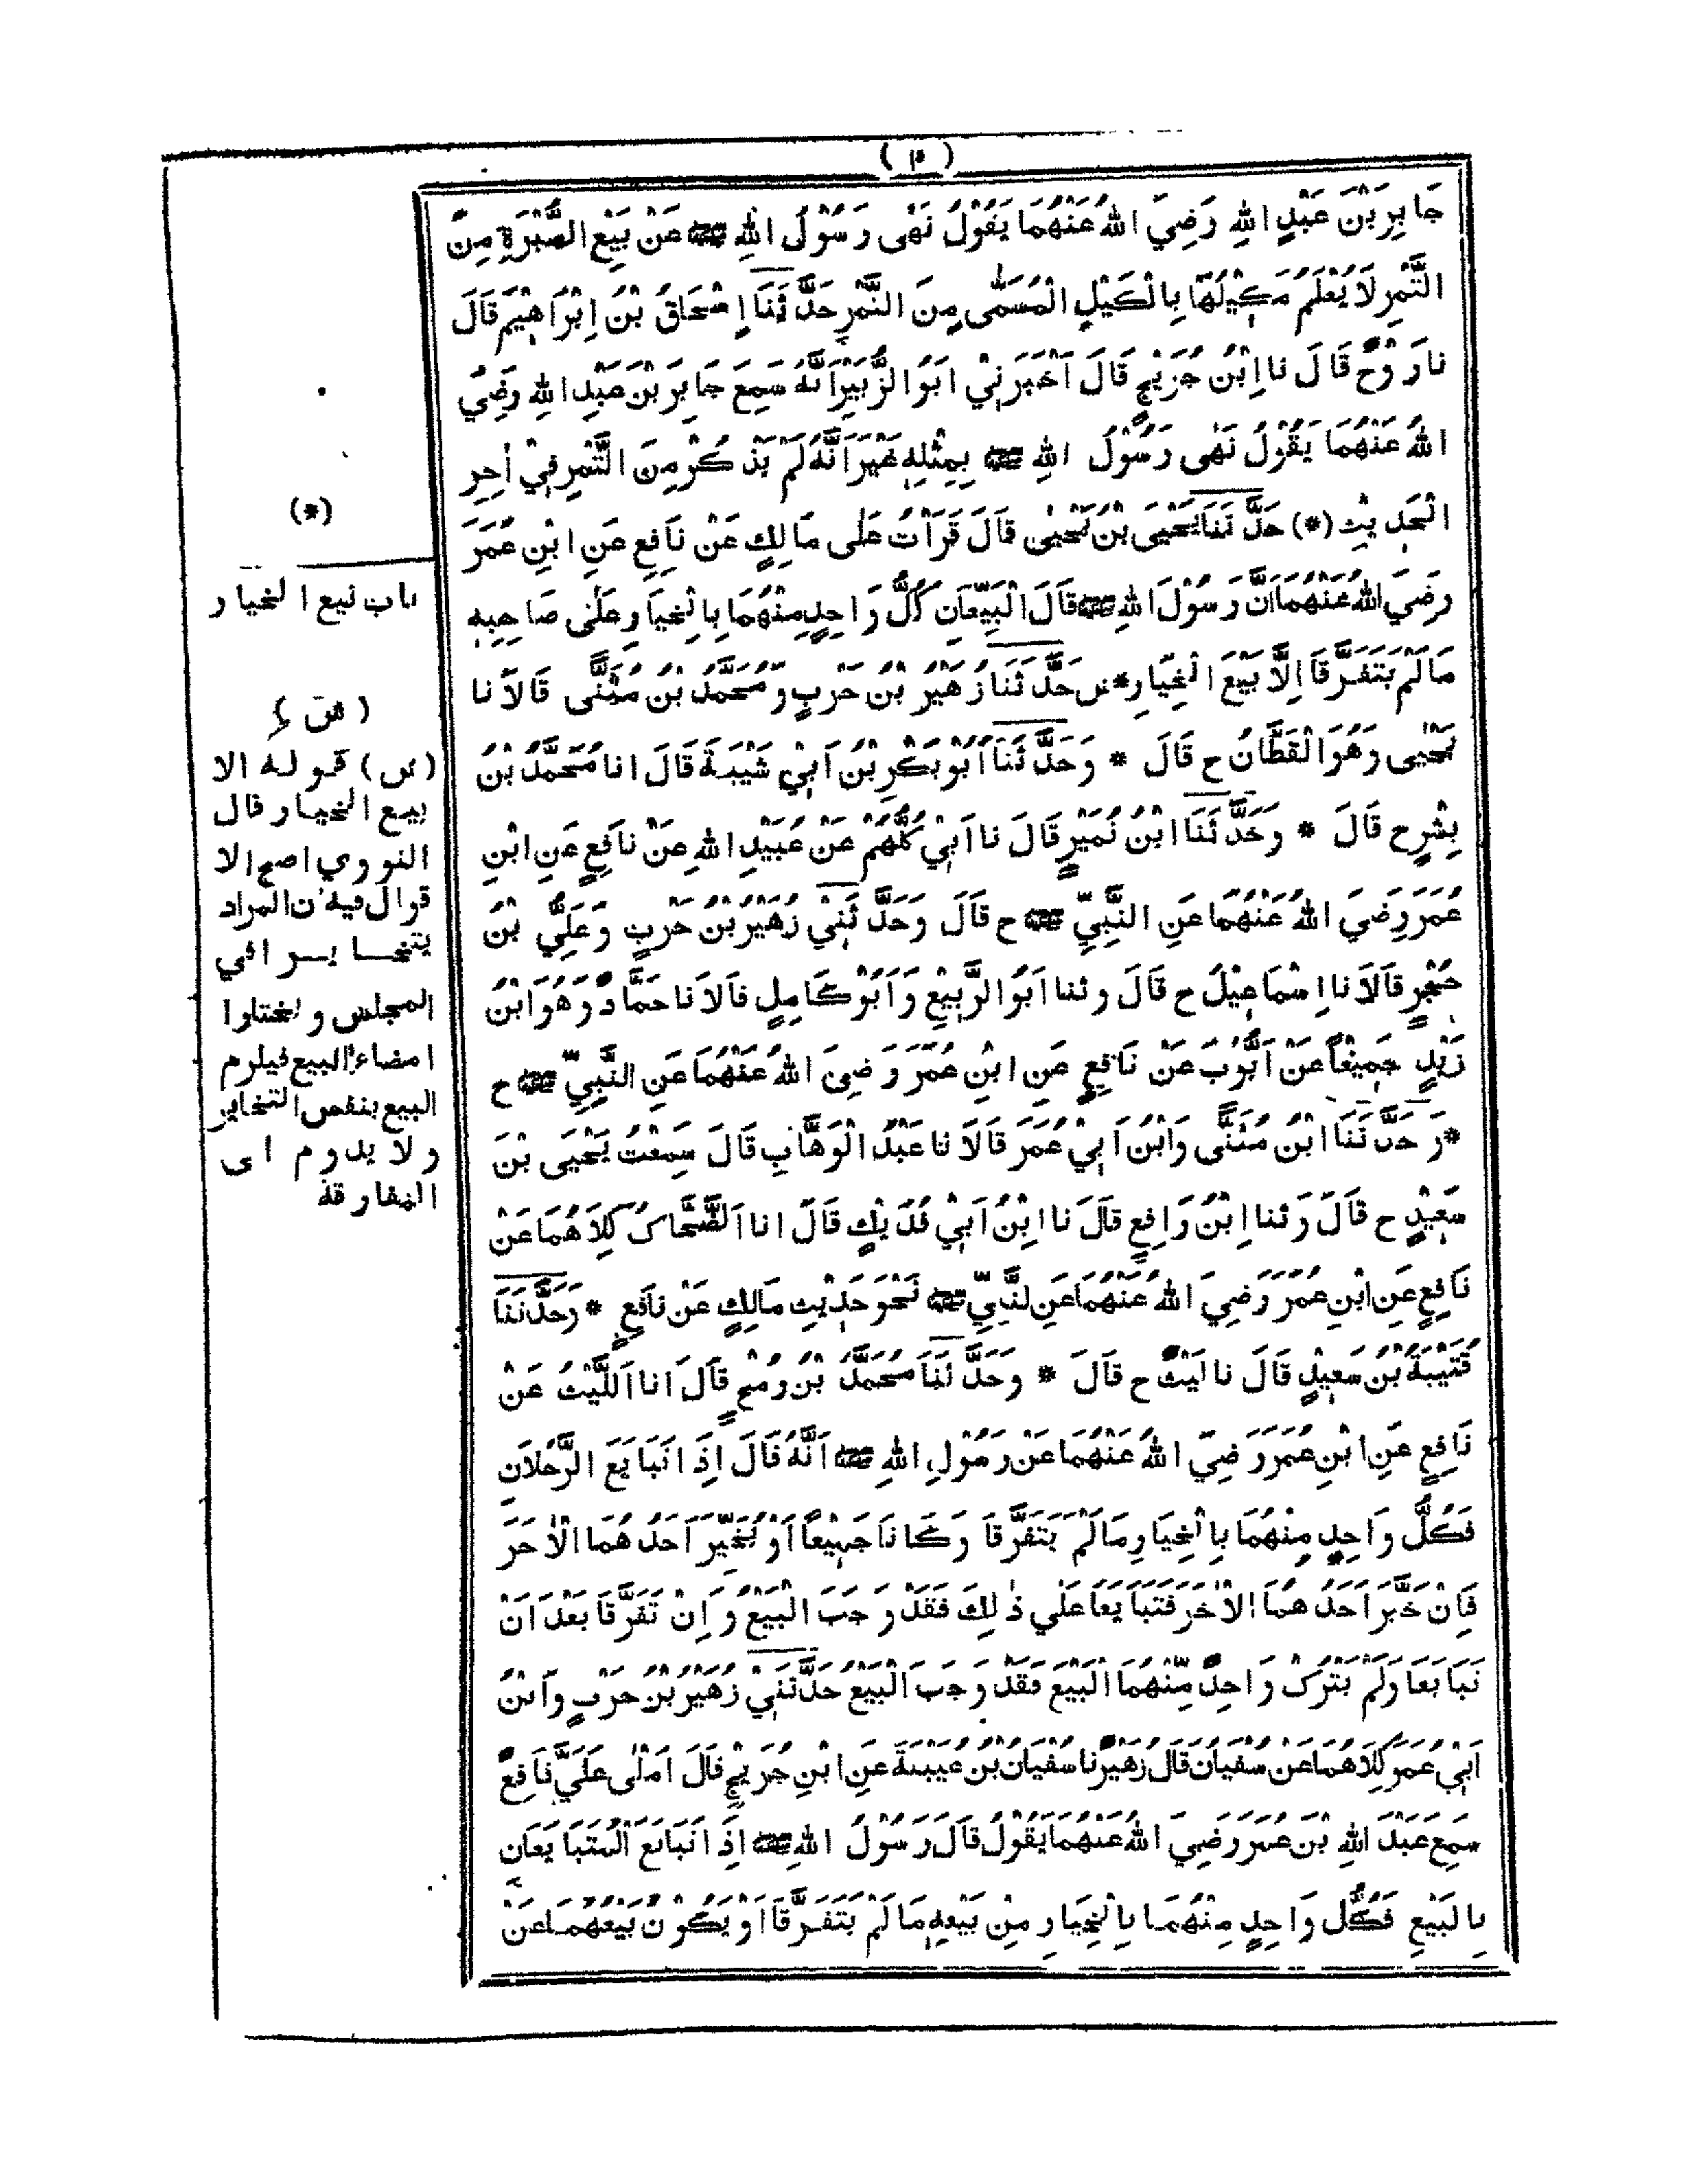 (١٠)
جَابِرَ بْنَ عَبْدِ اللهِ رَضِيَ اللهُ عَنْهُمَا يَقُوْلُ نَهٰى رَسُوْلُ اللهِ ﷺ عَنْ بَيْعِ الصُّبْرَةِ مِنَ
التَّمْرِ لَا يُعْلَمُ مَكِيْلُهَا بِالْكَيْلِ الْمُسَمّٰى مِنَ التَّمْرِ حَدَّثَنَا إِسْحَاقُ بْنُ اِبْرَاهِيْمَ قَالَ
نا رَوْحٌ قَالَ نا اِبْنُ جُرَيْجٍ قَالَ اَخْبَرَنِيْ اَبُو الزُّبَيْرِ اَنَّهُ سَمِعَ جَابِرَ بْنَ عَبْدِ اللهِ رَضِيَ
اللهُ عَنْهُمَا يَقُوْلُ نَهٰى رَسُوْلُ اللهِ ﷺ بِمِثْلِهٖ غَيْرَ اَنَّهُ لَمْ يَذْكُرْ مِنَ التَّمْرِ فِيْ اٰخِرِ
الْحَدِيْثِ (*) حَدَّثَنَا يَحْيَى بْنُ يَحْيٰى قَالَ قَرَاْتُ عَلٰى مَالِكٍ عَنْ نَافِعٍ عَنِ ابْنِ عُمَرَ
رَضِيَ اللهُ عَنْهُمَا اَنَّ رَسُوْلَ اللهِ ﷺ قَالَ الْبَيِّعَانِ كُلُّ وَاحِدٍ مِنْهُمَا بِالْخِيَارِ عَلٰى صَاحِبِهٖ
مَا لَمْ يَتَفَرَّقَا اِلَّا بَيْعَ الْخِيَارِ *ش حَدَّثَنَا زُهَيْرُ بْنُ حَرْبٍ وَمُحَمَّدُ بْنُ مُثَنّٰى قَالَا نا
يَحْيٰى وَهُوَ الْقَطَّانُ ح قَالَ * وَحَدَّثَنَا اَبُوْ بَكْرِ بْنُ اَبِيْ شَيْبَةَ قَالَ انا مُحَمَّدُ بْنُ
بِشْرٍ ح قَالَ * وَحَدَّثَنَا ابْنُ نُمَيْرٍ قَالَ نا اَبِيْ كُلُّهُمْ عَنْ عُبَيْدِ اللهِ عَنْ نَافِعٍ عَنِ ابْنِ
عُمَرَ رَضِيَ اللهُ عَنْهُمَا عَنِ النَّبِيِّ ﷺ ح قَالَ وَحَدَّثَنِيْ زُهَيْرُ بْنُ حَرْبٍ وَعَلِيُّ بْنُ
حُجْرٍ قَالَا نا اِسْمَاعِيْلُ ح قَالَ وثنا اَبُو الرَّبِيْعِ وَاَبُوْ كَامِلٍ قَالَا نا حَمَّادٌ وَهُوَ ابْنُ
زَيْدٍ جَمِيْعًا عَنْ اَيُّوْبَ عَنْ نَافِعٍ عَنِ ابْنِ عُمَرَ رَضِيَ اللهُ عَنْهُمَا عَنِ النَّبِيِّ ﷺ ح
*وَحَدَّثَنَا ابْنُ مُثَنّٰى وَابْنُ اَبِيْ عُمَرَ قَالَا نا عَبْدُ الْوَهَّابِ قَالَ سَمِعْتُ يَحْيَى بْنَ
سَعِيْدٍ ح قَالَ وَثنا اِبْنُ رَافِعٍ قَالَ نا ابْنُ اَبِيْ فُدَيْكٍ قَالَ انا الضَّحَّاكُ كِلَاهُمَا عَنْ
نَافِعٍ عَنِ ابْنِ عُمَرَ رَضِيَ اللهُ عَنْهُمَا عَنِ لنَّبِيِّ ﷺ نَحْوَ حَدِيْثِ مَالِكٍ عَنْ نَافِعٍ * وَحَدَّثَنَا
قُتَيْبَةُ بْنُ سَعِيْدٍ قَالَ نا لَيْثٌ ح قَالَ * وَحَدَّثَنَا مُحَمَّدُ بْنُ رُمْحٍ قَالَ انا اَللَّيْثُ عَنْ
نَافِعٍ عَنِ ابْنِ عُمَرَ رَضِيَ اللهُ عَنْهُمَا عَنْ رَسُوْلِ اللهِ ﷺ اَنَّهُ قَالَ اِذَا تَبَايَعَ الرَّجُلَانِ
فَكُلُّ وَاحِدٍ مِنْهُمَا بِالْخِيَارِ مَا لَمْ يَتَفَرَّقَا وَكَانَا جَمِيْعًا اَوْ يُخَيِّرَ اَحَدُهُمَا الْاٰخَرَ
فَاِنْ خَيَّرَ اَحَدُهُمَا الْاٰخَرَ فَتَبَايَعَا عَلٰى ذٰلِكَ فَقَدْ وَجَبَ الْبَيْعُ وَاِنْ تَفَرَّقَا بَعْدَ اَنْ
تَبَايَعَا وَلَمْ يَتْرُكْ وَاحِدٌ مِّنْهُمَا الْبَيْعَ فَقَدْ وَجَبَ الْبَيْعُ حَدَّثَنِيْ زُهَيْرُ بْنُ حَرْبٍ وَابْنُ
اَبِيْ عُمَرَ كِلَاهُمَا عَنْ سُفْيَانَ قَالَ زُهَيْرٌ نا سُفْيَانُ بْنُ عُيَيْنَةَ عَنِ ابْنِ جُرَيْجٍ قَالَ اَمْلٰى عَلَيَّ نَافِعٌ
سَمِعَ عَبْدَ اللهِ بْنَ عُمَرَ رَضِيَ اللهُ عَنْهُمَا يَقُوْلُ قَالَ رَسُوْلُ اللهِ ﷺ اِذَا تَبَايَعَ الْمُتَبَايِعَانِ
بِالْبَيْعِ فَكُلُّ وَاحِدٍ مِنْهُمَا بِالْخِيَارِ مِنْ بَيْعِهٖ مَا لَمْ يَتَفَرَّقَا اَوْ يَكُوْنُ بَيْعُهُمَا عَنْ
(*)
باب بيع الخيار
(ش)
(ش) قوله الا
بيع الخيار قال
النووي اصح الا
قوال فيه ان المراد
يتخايرا في
المجلس و يختارا
امضاء البيع فيلزم
البيع بنفس التخاير
ولا يدوم الى
المفارقة